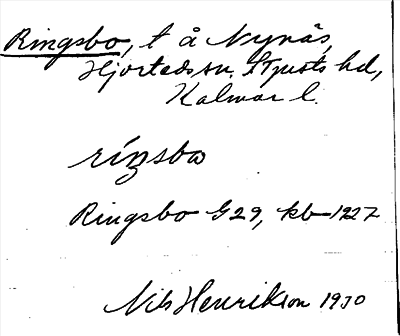 Ringsbo, t å Nynäs,
Hjorteds sn. S Tjusts hd,
Kalmar l.
ríŋsbω
Ringsbo G29, kb-1227
Nils Henrikson 1930